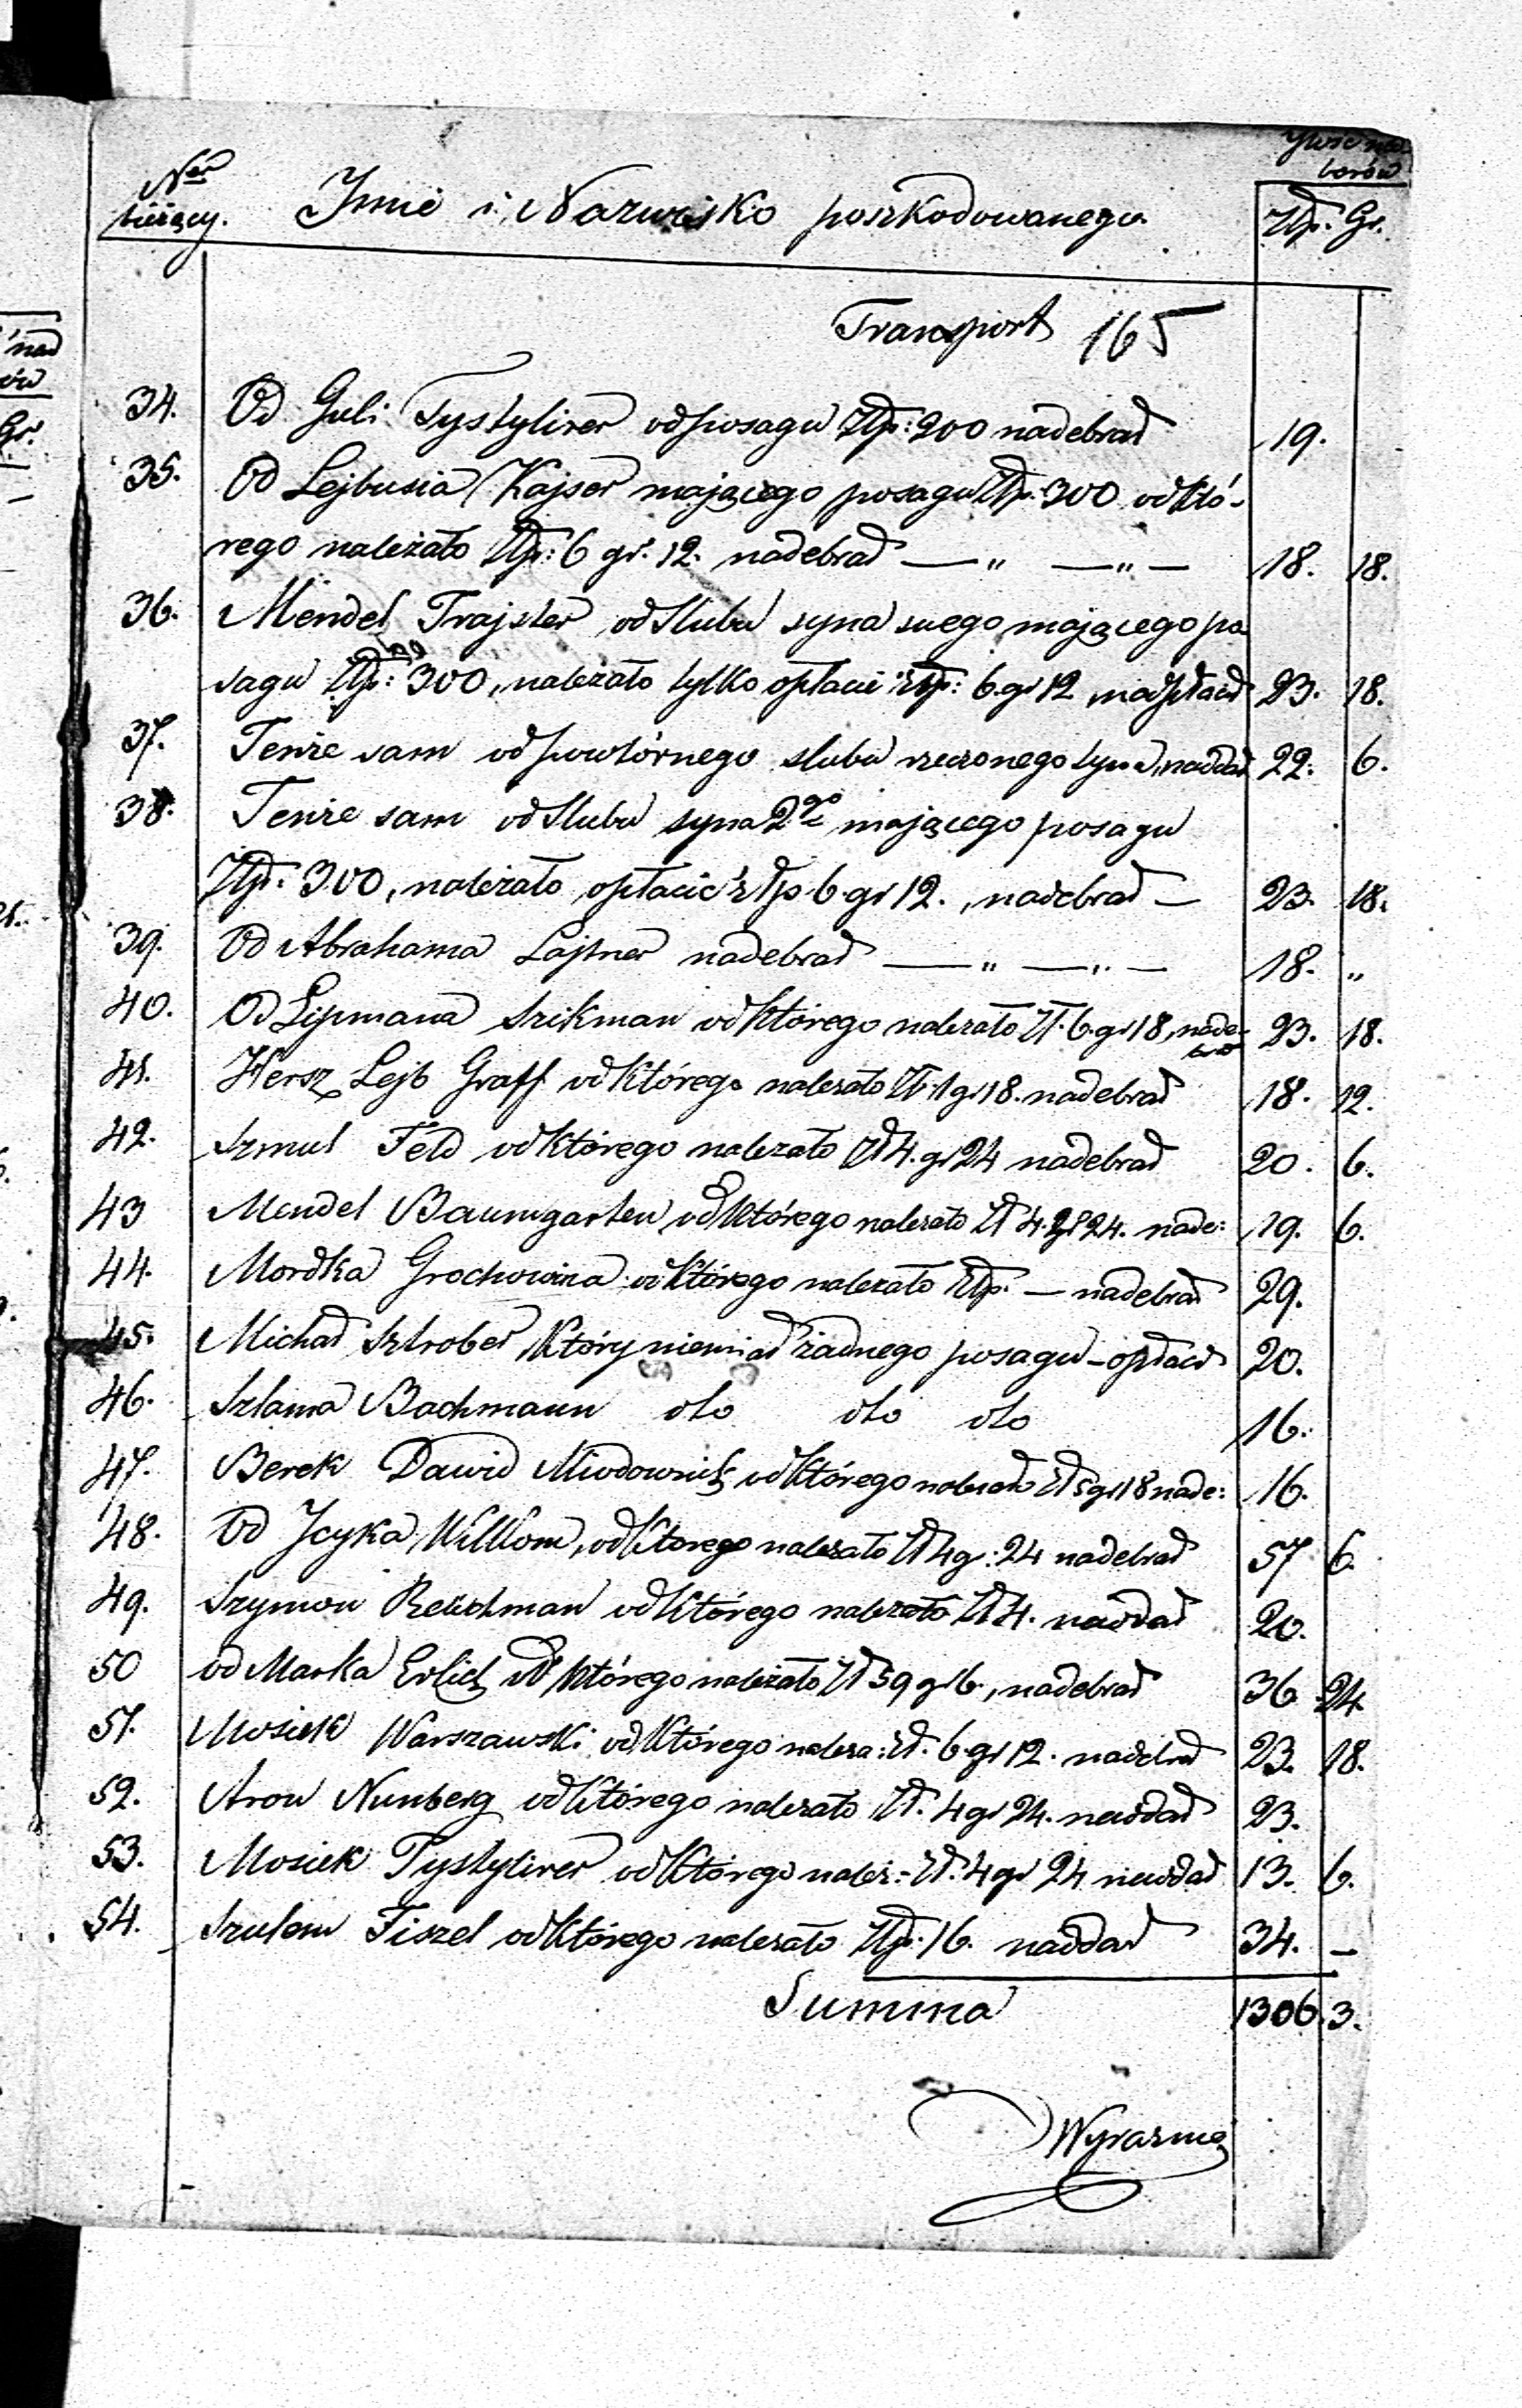 Ner
bieżący.
Imie i Nazwisko poszkodowanego
Ilość nad-
borów
Złp. Gr.
Transport 165
34. Od Guli Tystylirer od posagu Złp: 200 nadebrał 19.
35. Od Lejbusia Kajser mającego posagu Złp. 300 od któ-
rego należało Złp: 6 gr. 12. nadebrał — „ — „ — 18. 18.
36. Mendel Trajster od slubu syna swego mającego po
sagu Złp: 300, należało tylko opłacić Złp: 6. gr 12 nadpłacił 23. 18.
37. Tenże sam od powtórnego slubu rzeczonego syna, naddał 22. 6.
38. Tenże sam od slubu syna 2go mającego posagu
Złp. 300, należało opłacić złp. 6. gr 12., nadebrał — 23. 18.
39. Od Abrahama Lajtner nadebrał — „ — „ — 18. „
40. Od Lipmana Szikman od którego należało Zł. 6. gr 18, nade-
brał 23. 18.
41. Hersz Lejb Graff od którego należało Zł. 1 gr 18. nadebrał 18. 12.
42. Szmul Feld od którego należało Zł 4. gr 24 nadebrał 20. 6.
43 Mendel Baumgarten od którego należało Zł 4. gr 24. nade: 19. 6.
44. Mordka Grochowina od którego należało Złp. — nadebrał 29.
45. Michał Sztrober który niemiał żadnego posagu – opłacił 20.
46. Szlama Bachmann dto dto dto 16.
47. Berek Dawid Miodownik od którego należało Zł 5 gr 18 nade: 16.
48. Od Icyka Willom, od ktorego należało Zł 4 gr: 24 nadebrał 57 6.
49. Szymon Reichman od którego należało Zł 4. naddał 20.
50 od Marka Erlich od którego należało Zł 59 gr 6., nadebrał 36 24
51. Mosiek Warszawski od którego należa: Zł. 6. gr 12. nadebrał 23. 18.
52. Aron Nunberg od którego należało Zł. 4 gr 24. naddał 23.
53. Mosiek Tystylirer od którego należ:- Zł. 4 gr 24 naddał 13. 6.
54. Szulem Fiszel od którego należało Złp. 16. naddał 34. —
Summa 1306. 3.